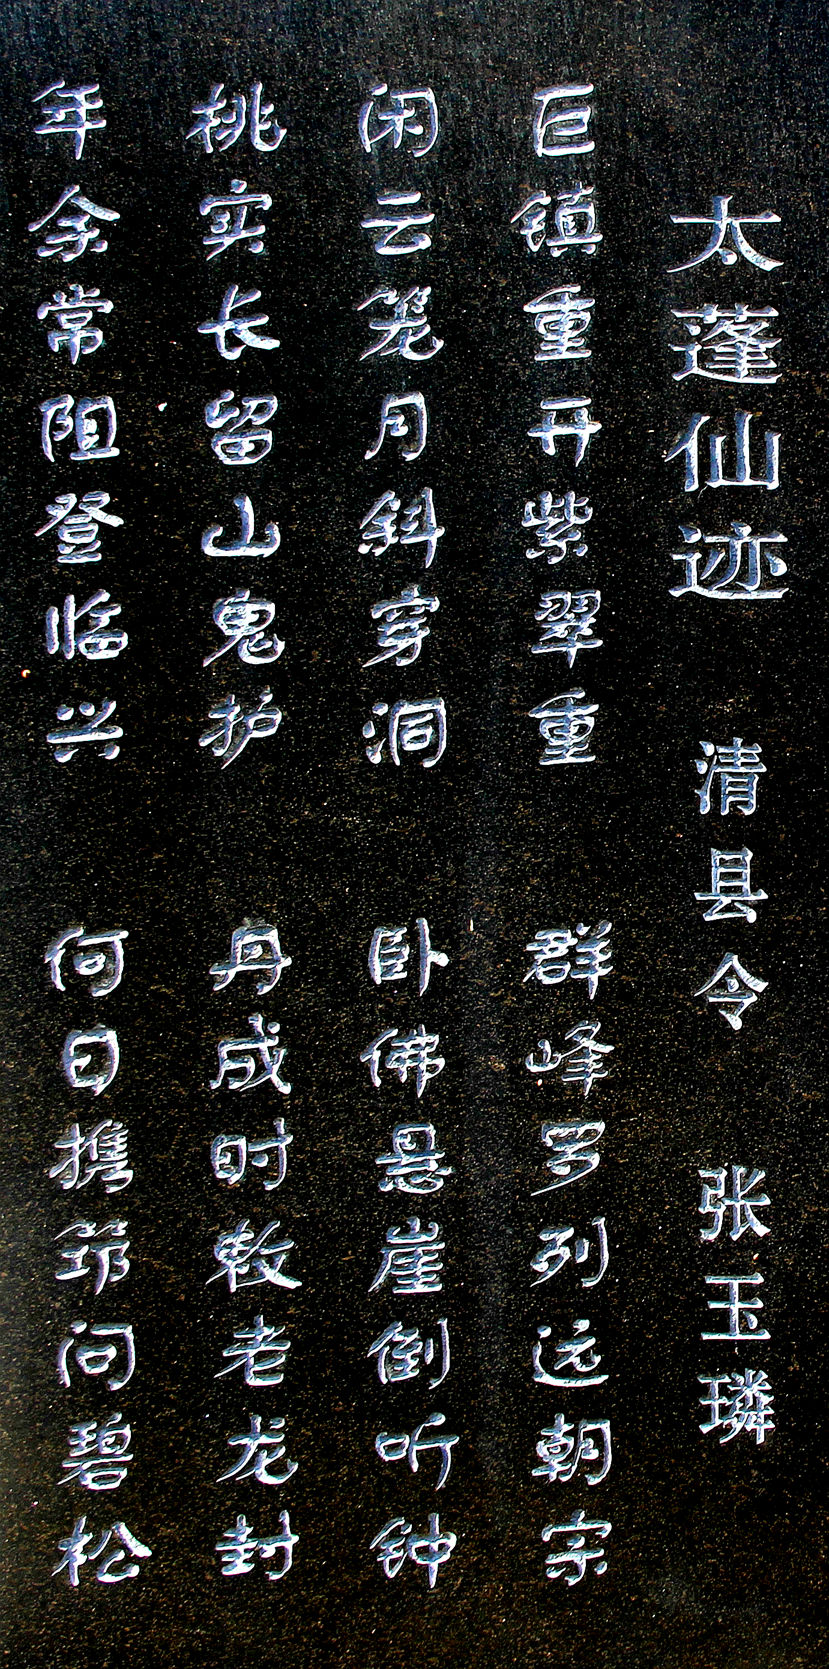 太蓬仙迹 清县令 张玉璘
巨镇重开紫翠重 群峰罗列远朝宗
闲云笼月斜穿洞 卧佛悬崖倒听钟
桃实长留山鬼护 丹成时敕老龙封
年余常阻登临兴 何日携筇问碧松